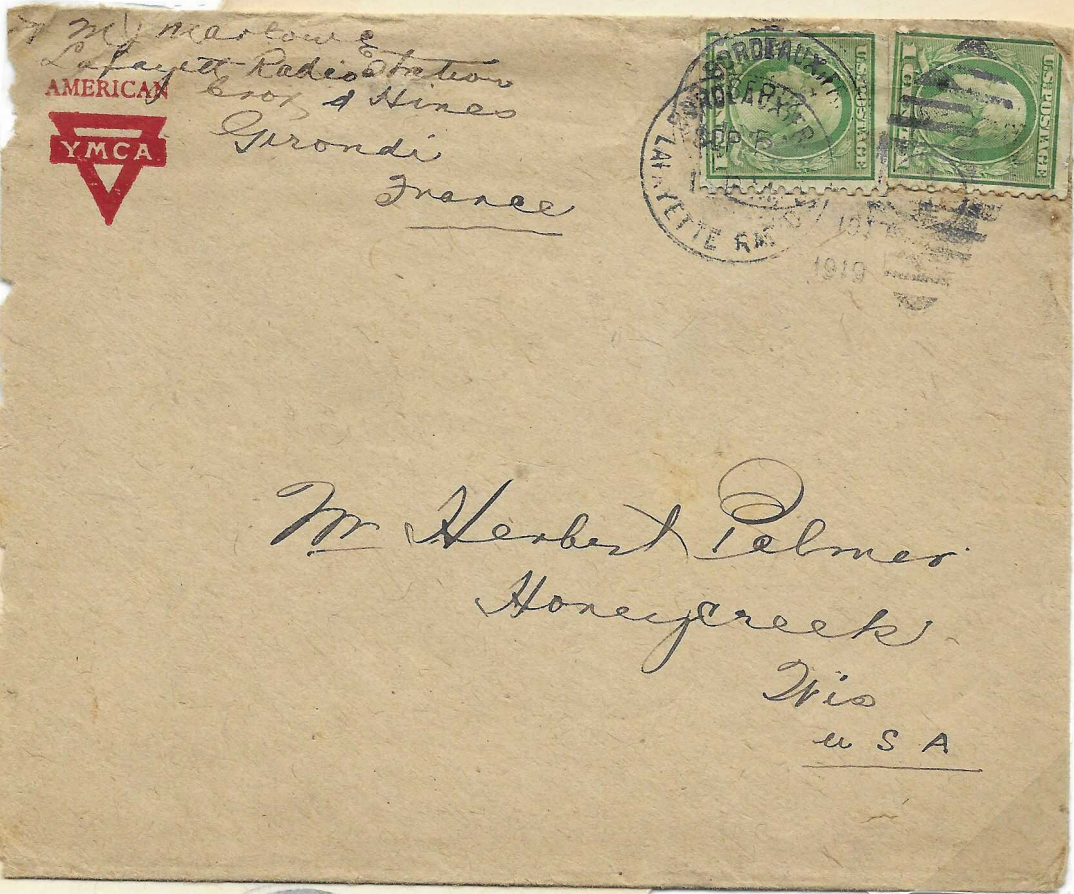 M J Marlow
Lafayett Radio Station
Croix d Hines
Girondi
France
AMERICAN
YMCA
BORDEAUX, FR.
BORDEAUX, FR.
SEP 5
LAFAYETTE RADIO
1919
U.S. POSTAGE
1
U.S. POSTAGE
1
Mr Herbert Palmer
Honeycreek
Wis
U S A